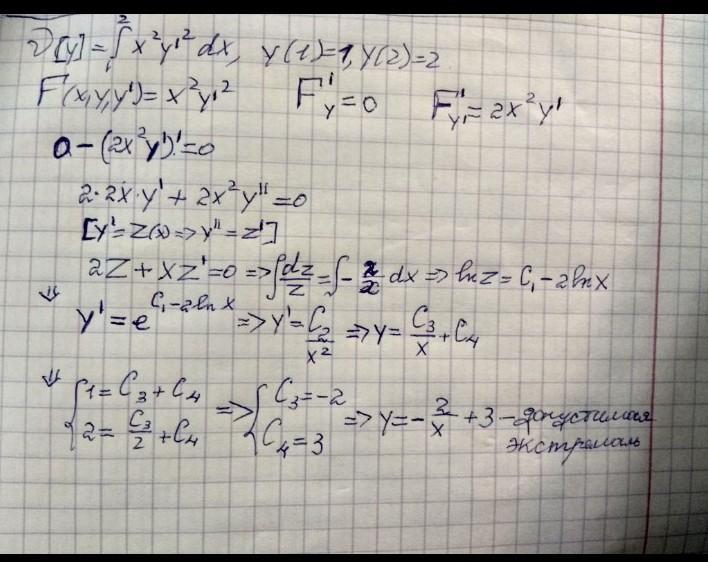 𝒥[y] = ∫₁² x²y'² dx, y(1)=1, y(2)=2
F(x,y,y') = x²y'² F'_y = 0 F'_y' = 2x²y'
0 - (2x²y')' = 0
2·2x·y' + 2x²y'' = 0
[y' = z(x) => y'' = z']
2z + xz' = 0 => ∫dz/z = ∫-2/x dx => ln z = C₁ - 2ln x
⇓ y' = e^(C₁-2ln x) => y' = C₂/x² => y = C₃/x + C₄
⇓ { 1 = C₃ + C₄ => { C₃ = -2 => y = -2/x + 3 - допустимая
2 = C₃/2 + C₄ C₄ = 3 экстремаль